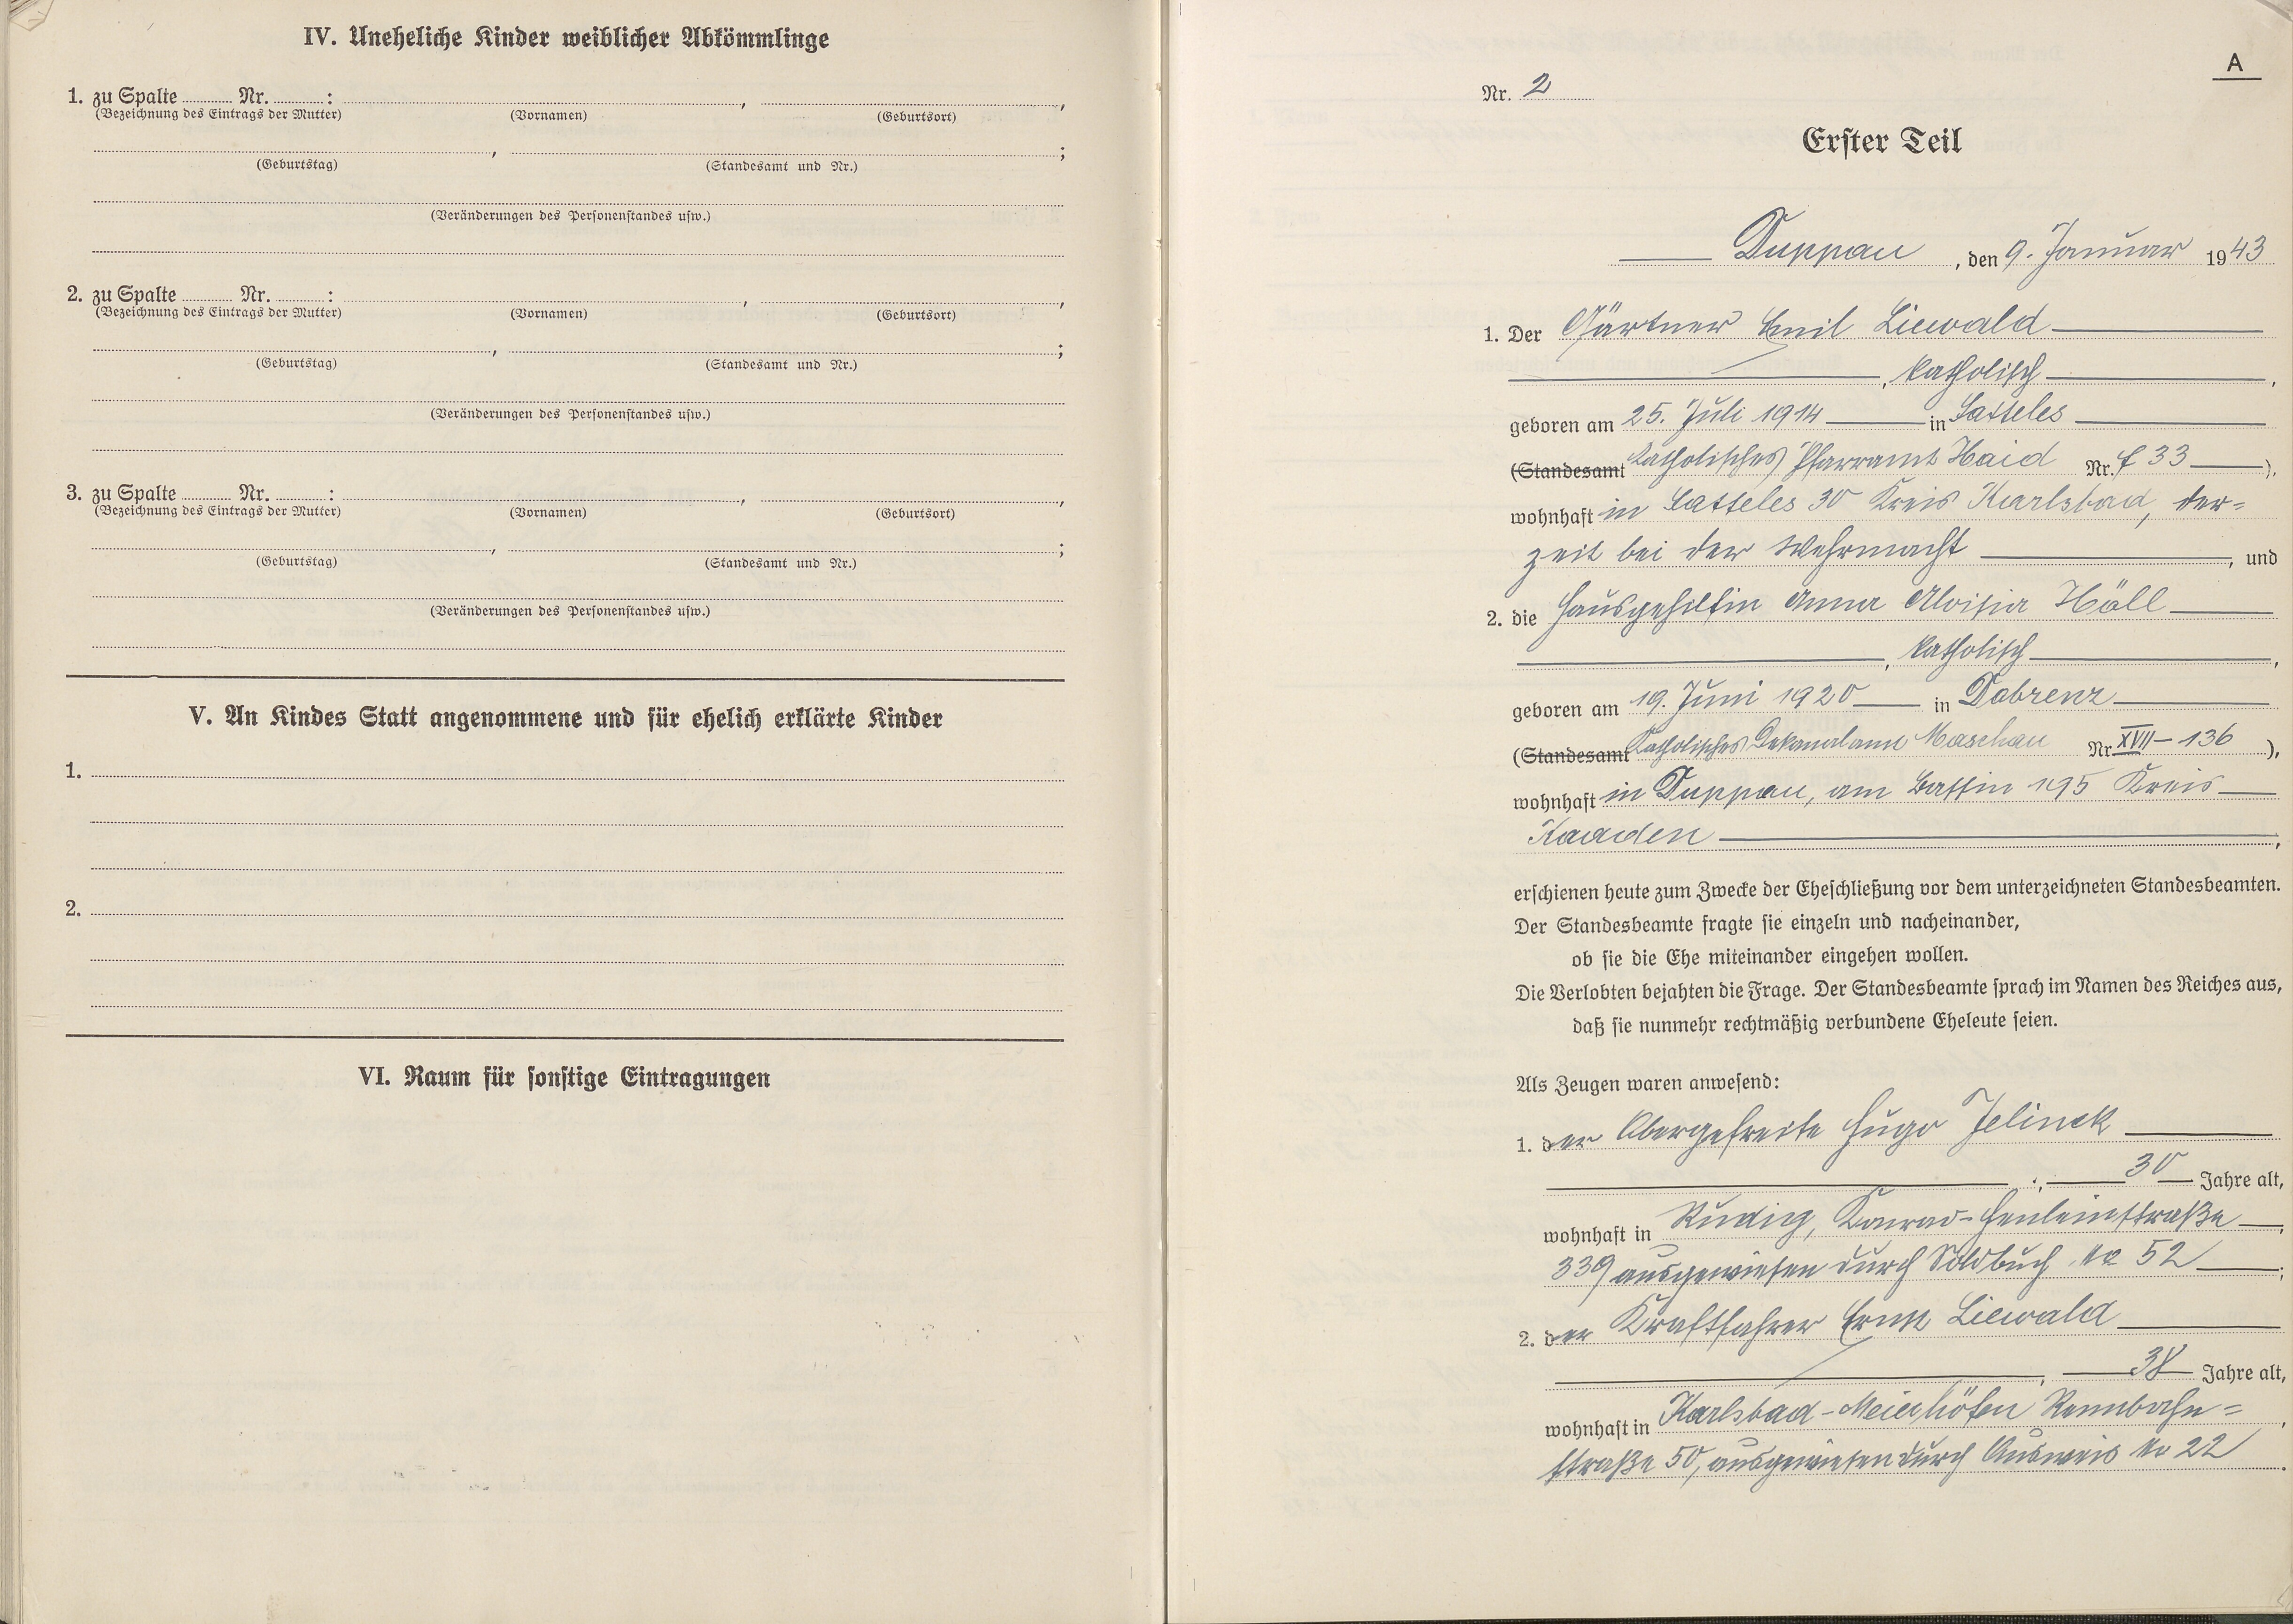 IV. Uneheliche Kinder weiblicher Abkömmlinge
1. zu Spalte ........ Nr. ........ : , ,
(Bezeichnung des Eintrags der Mutter) (Vornamen) (Geburtsort)
, ;
(Geburtstag) (Standesamt und Nr.)
(Veränderungen des Personenstandes usw.)
2. zu Spalte ........ Nr. ........ : , ,
(Bezeichnung des Eintrags der Mutter) (Vornamen) (Geburtsort)
, ;
(Geburtstag) (Standesamt und Nr.)
(Veränderungen des Personenstandes usw.)
3. zu Spalte ........ Nr. ........ : , ,
(Bezeichnung des Eintrags der Mutter) (Vornamen) (Geburtsort)
, ;
(Geburtstag) (Standesamt und Nr.)
(Veränderungen des Personenstandes usw.)
V. An Kindes Statt angenommene und für ehelich erklärte Kinder
1.
2.
VI. Raum für sonstige Eintragungen
A
Nr. 2
Erster Teil
Duppau, den 9. Januar 1943
1. Der Gärtner Emil Liewald
, katholisch,
geboren am 25. Juli 1914 in Satteles
(Standesamt Katholisches Pfarramt Haid Nr. f 33),
wohnhaft in Satteles 30 Kreis Karlsbad, der=
zeit bei der Wehrmacht, und
2. die Hausgehilfin Anna Aloisia Höll
, katholisch,
geboren am 19. Juni 1920 in Dobrenz
(Standesamt Katholisches Dekanalamt Maschau Nr XVII - 136),
wohnhaft in Duppau, am Bassin 195 Kreis
Kaaden,
erschienen heute zum Zwecke der Eheschließung vor dem unterzeichneten Standesbeamten.
Der Standesbeamte fragte sie einzeln und nacheinander,
ob sie die Ehe miteinander eingehen wollen.
Die Verlobten bejahten die Frage. Der Standesbeamte sprach im Namen des Reiches aus,
daß sie nunmehr rechtmäßig verbundene Eheleute seien.
Als Zeugen waren anwesend:
1. der Obergefreite Hugo Jelinek
, 30 Jahre alt,
wohnhaft in Rudig, Konrad-Henleinstraße
339 ausgewiesen durch Soldbuch No 52;
2. der Kraftfahrer Ernst Liewald
, 38 Jahre alt,
wohnhaft in Karlsbad-Meierhöfen Rennbahn=
straße 50, ausgewiesen durch Ausweis No 22.